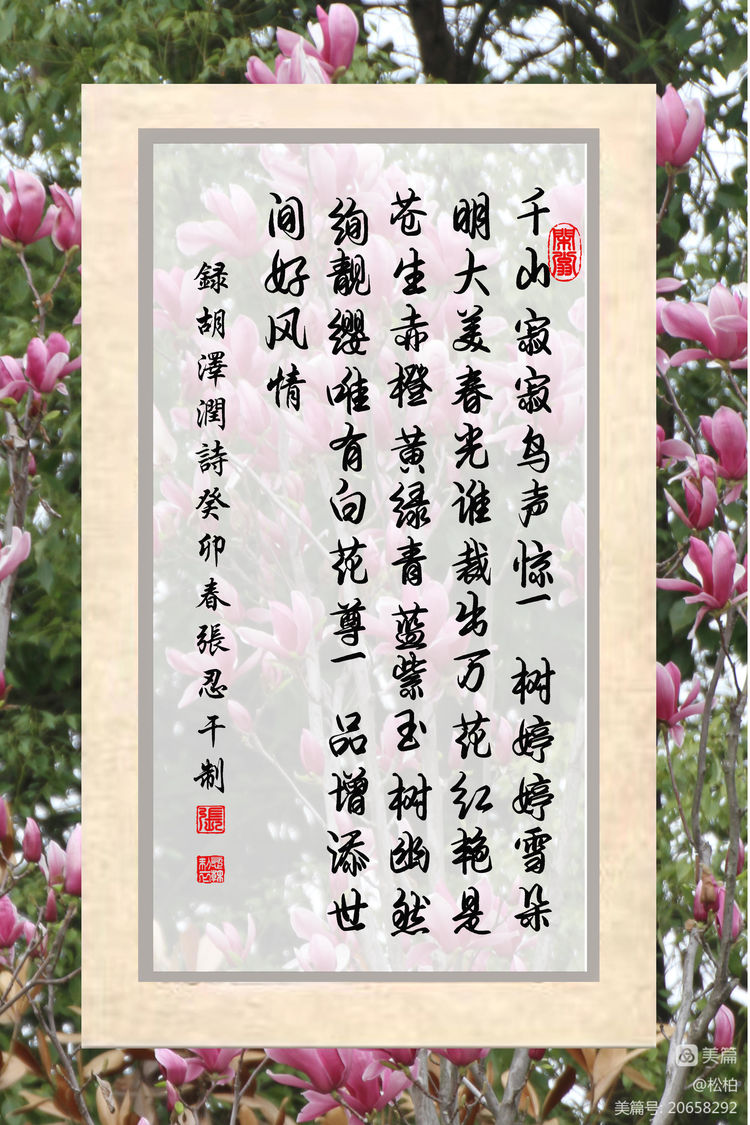 千山寂寂鸟声惊一树婷婷雪朵
明大美春光谁裁出万花红艳是
苍生赤橙黄绿青蓝紫玉树幽然
绚靓缨唯有白花尊一品增添世
间好风情
録胡澤潤詩癸卯春張忍干制
張
美篇
@松柏
美篇号: 20658292